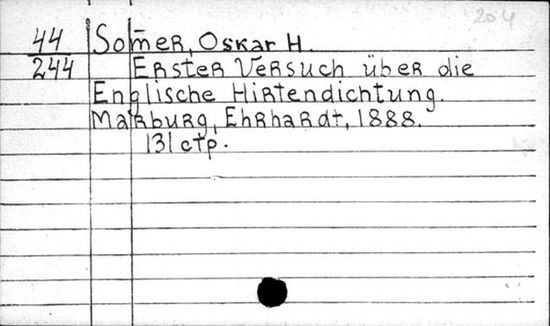 204
44 Som̅er, Oskar H.
244 Erster Versuch über die
Englische Hirtendichtung.
Marburg, Ehrhardt, 1888.
131 стр.